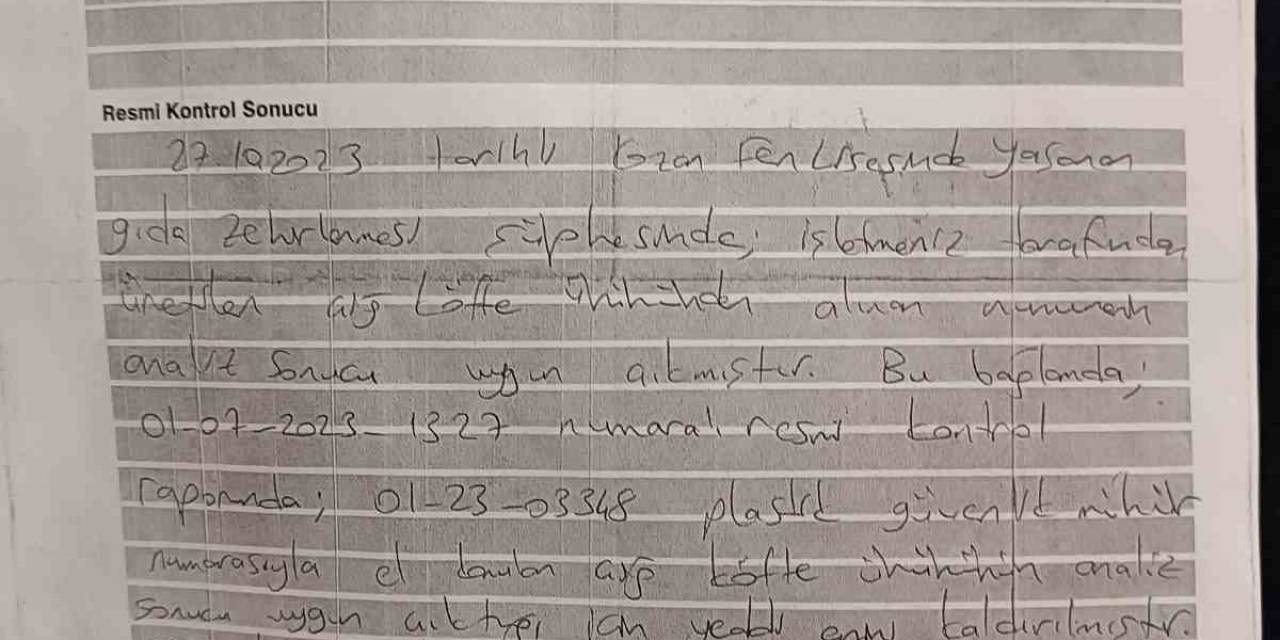 Resmi Kontrol Sonucu
27.10.2023 tarihli Kozan Fen Lisesinde yaşanan
gıda zehirlenmesi şüphesinde; işletmeniz tarafından
üretilen çiğ köfte ürününden alınan numunenin
analiz sonucu uygun çıkmıştır. Bu bağlamda;
01-07-2023-1327 numaralı resmi kontrol
raporunda; 01-23-03348 plastik güvenlik mühür
numarasıyla el konulan çiğ köfte ürününün analiz
sonucu uygun çıktığı için yeddi emin kaldırılmıştır.